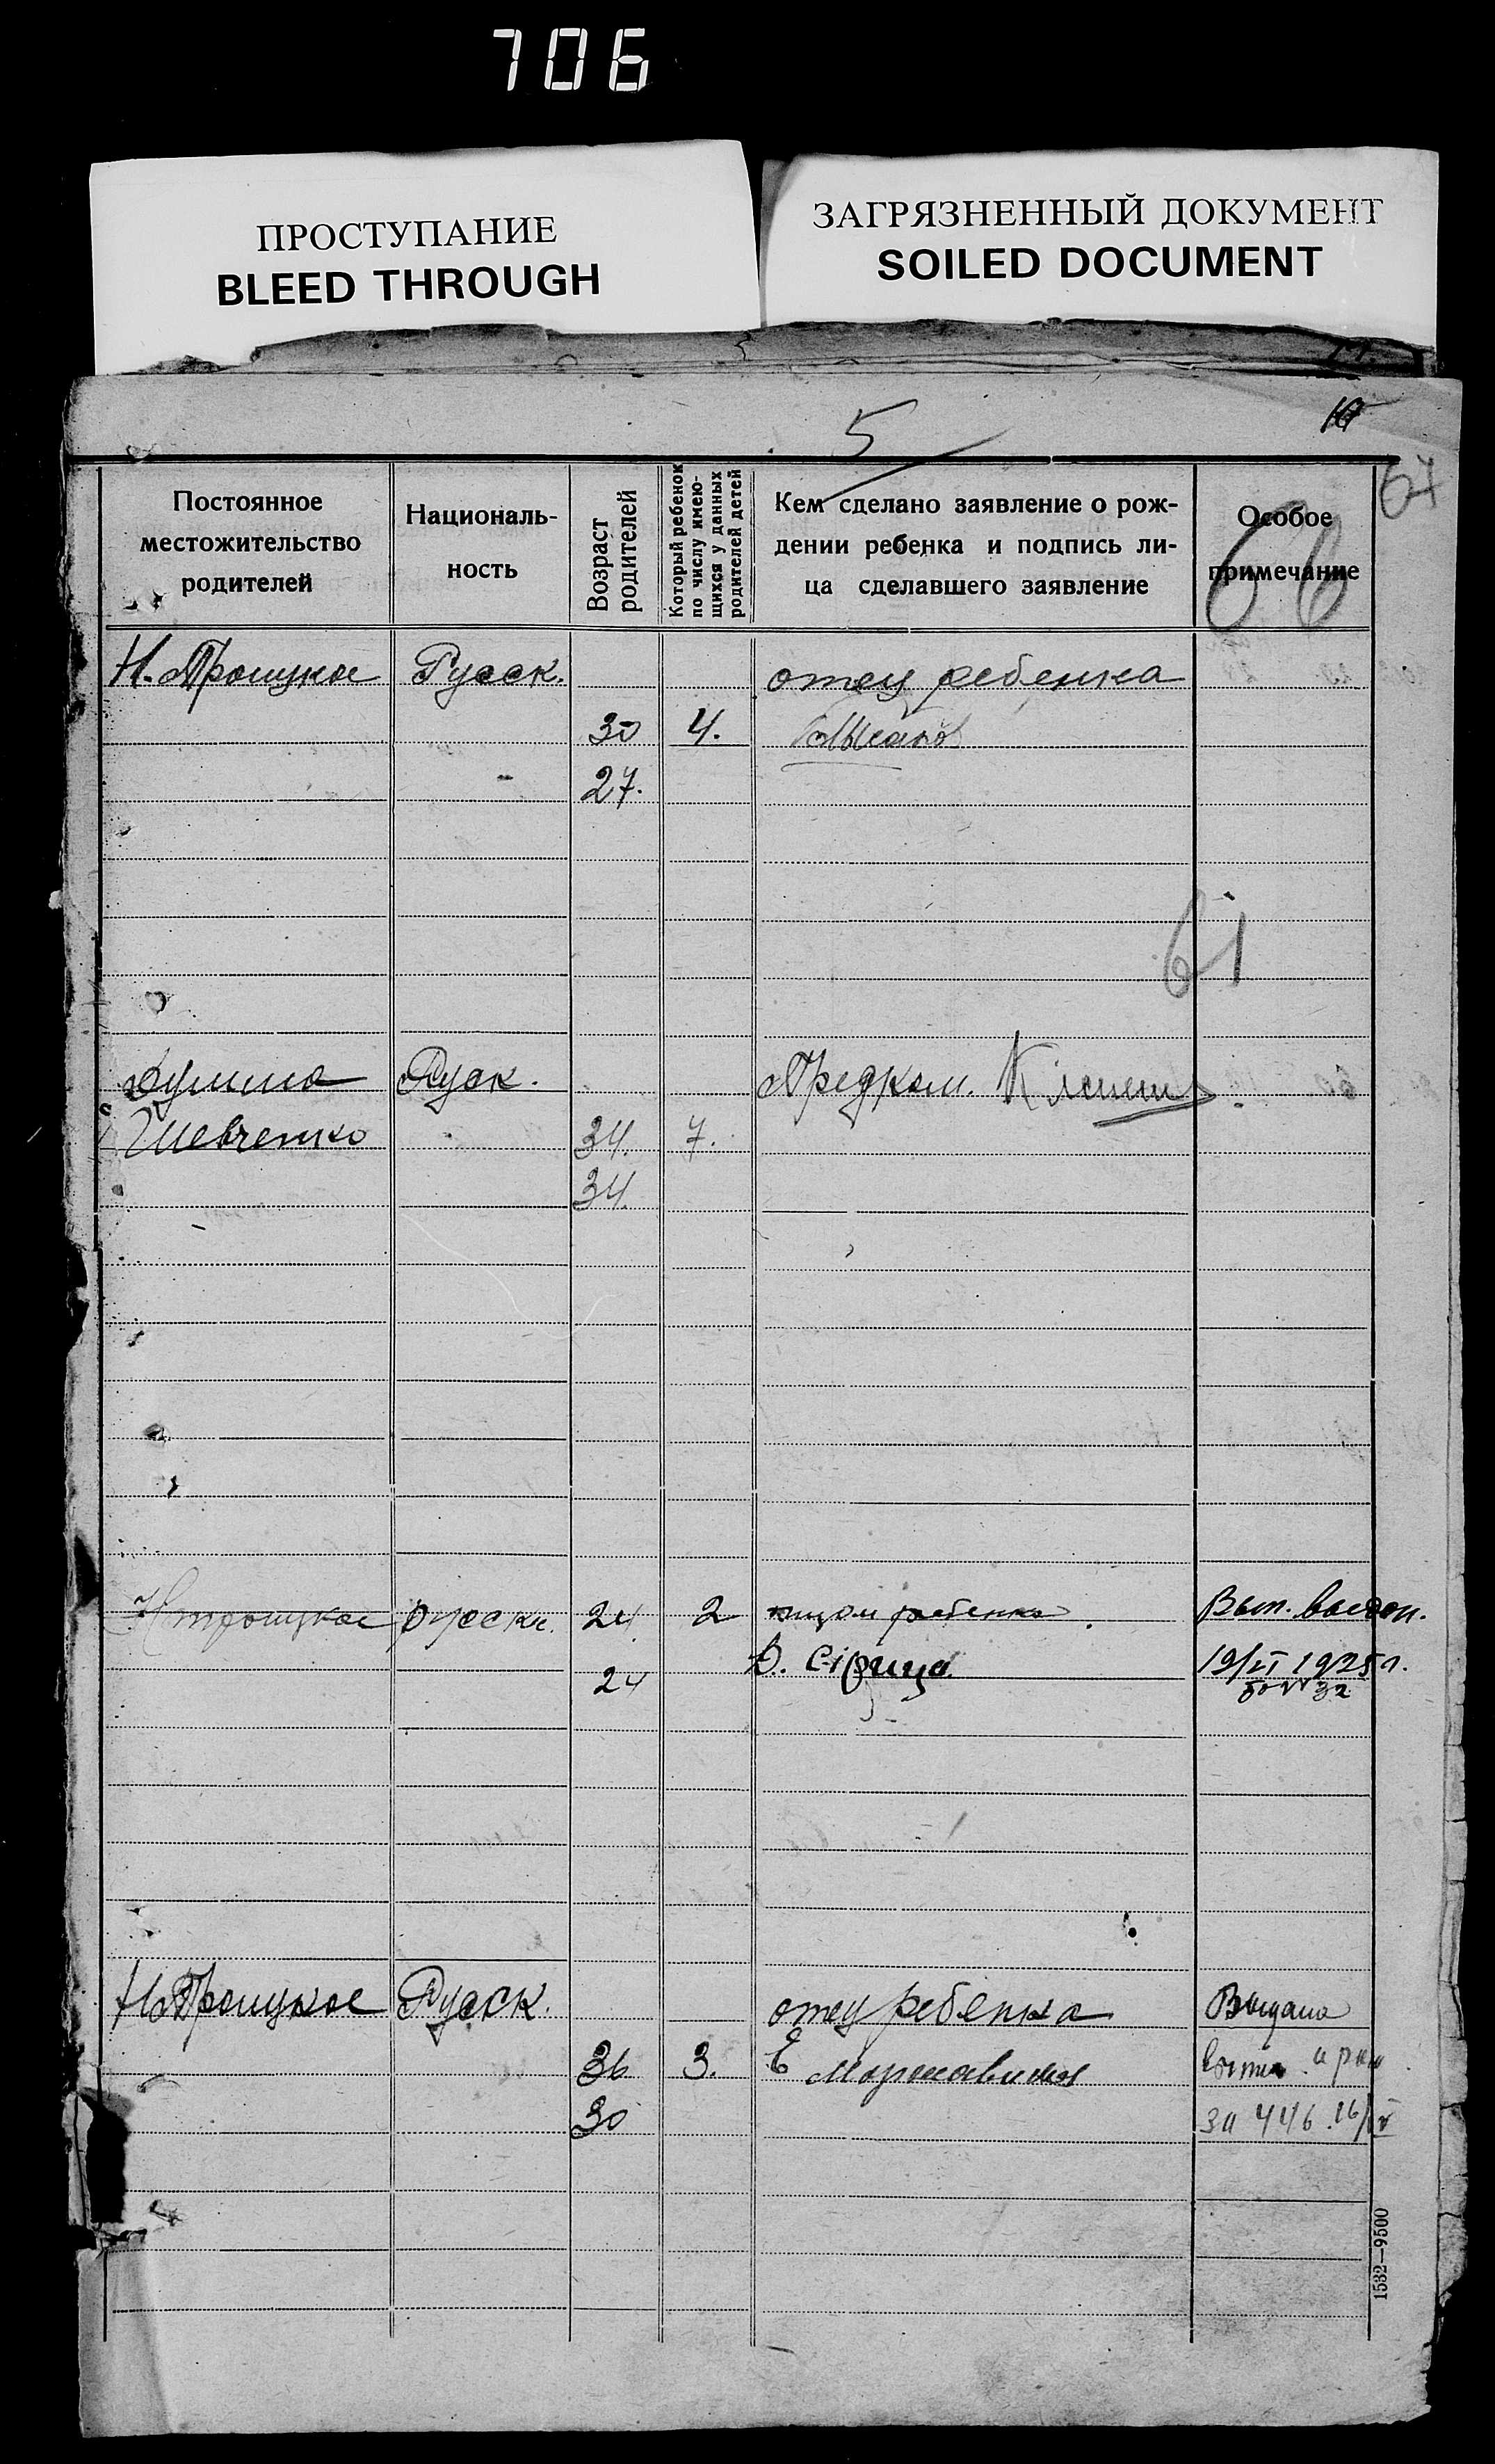 706
ПРОСТУПАНИЕ
BLEED THROUGH
ЗАГРЯЗНЕННЫЙ ДОКУМЕНТ
SOILED DOCUMENT
5
67
66
Постоянное
местожительство
родителей
Националь-
ность
Возраст
родителей
Который ребенок
по числу имею-
щихся у данных
родителей детей
Кем сделано заявление о рож-
дении ребенка и подпись ли-
ца сделавшего заявление
Особое
примечание
Н. Троицкое Русск. отец ребенка
30 4.
27.
61
Руск. Предком.
Шевченко 34. 7.
34.
Н троицкое русск. 24 2 ребенка Вып.
24 19/VI 1925 г.
32
Н Троицкое Русск. отец ребенка Выдана
36 3. Е
30 за 446 16/V
1532—9500